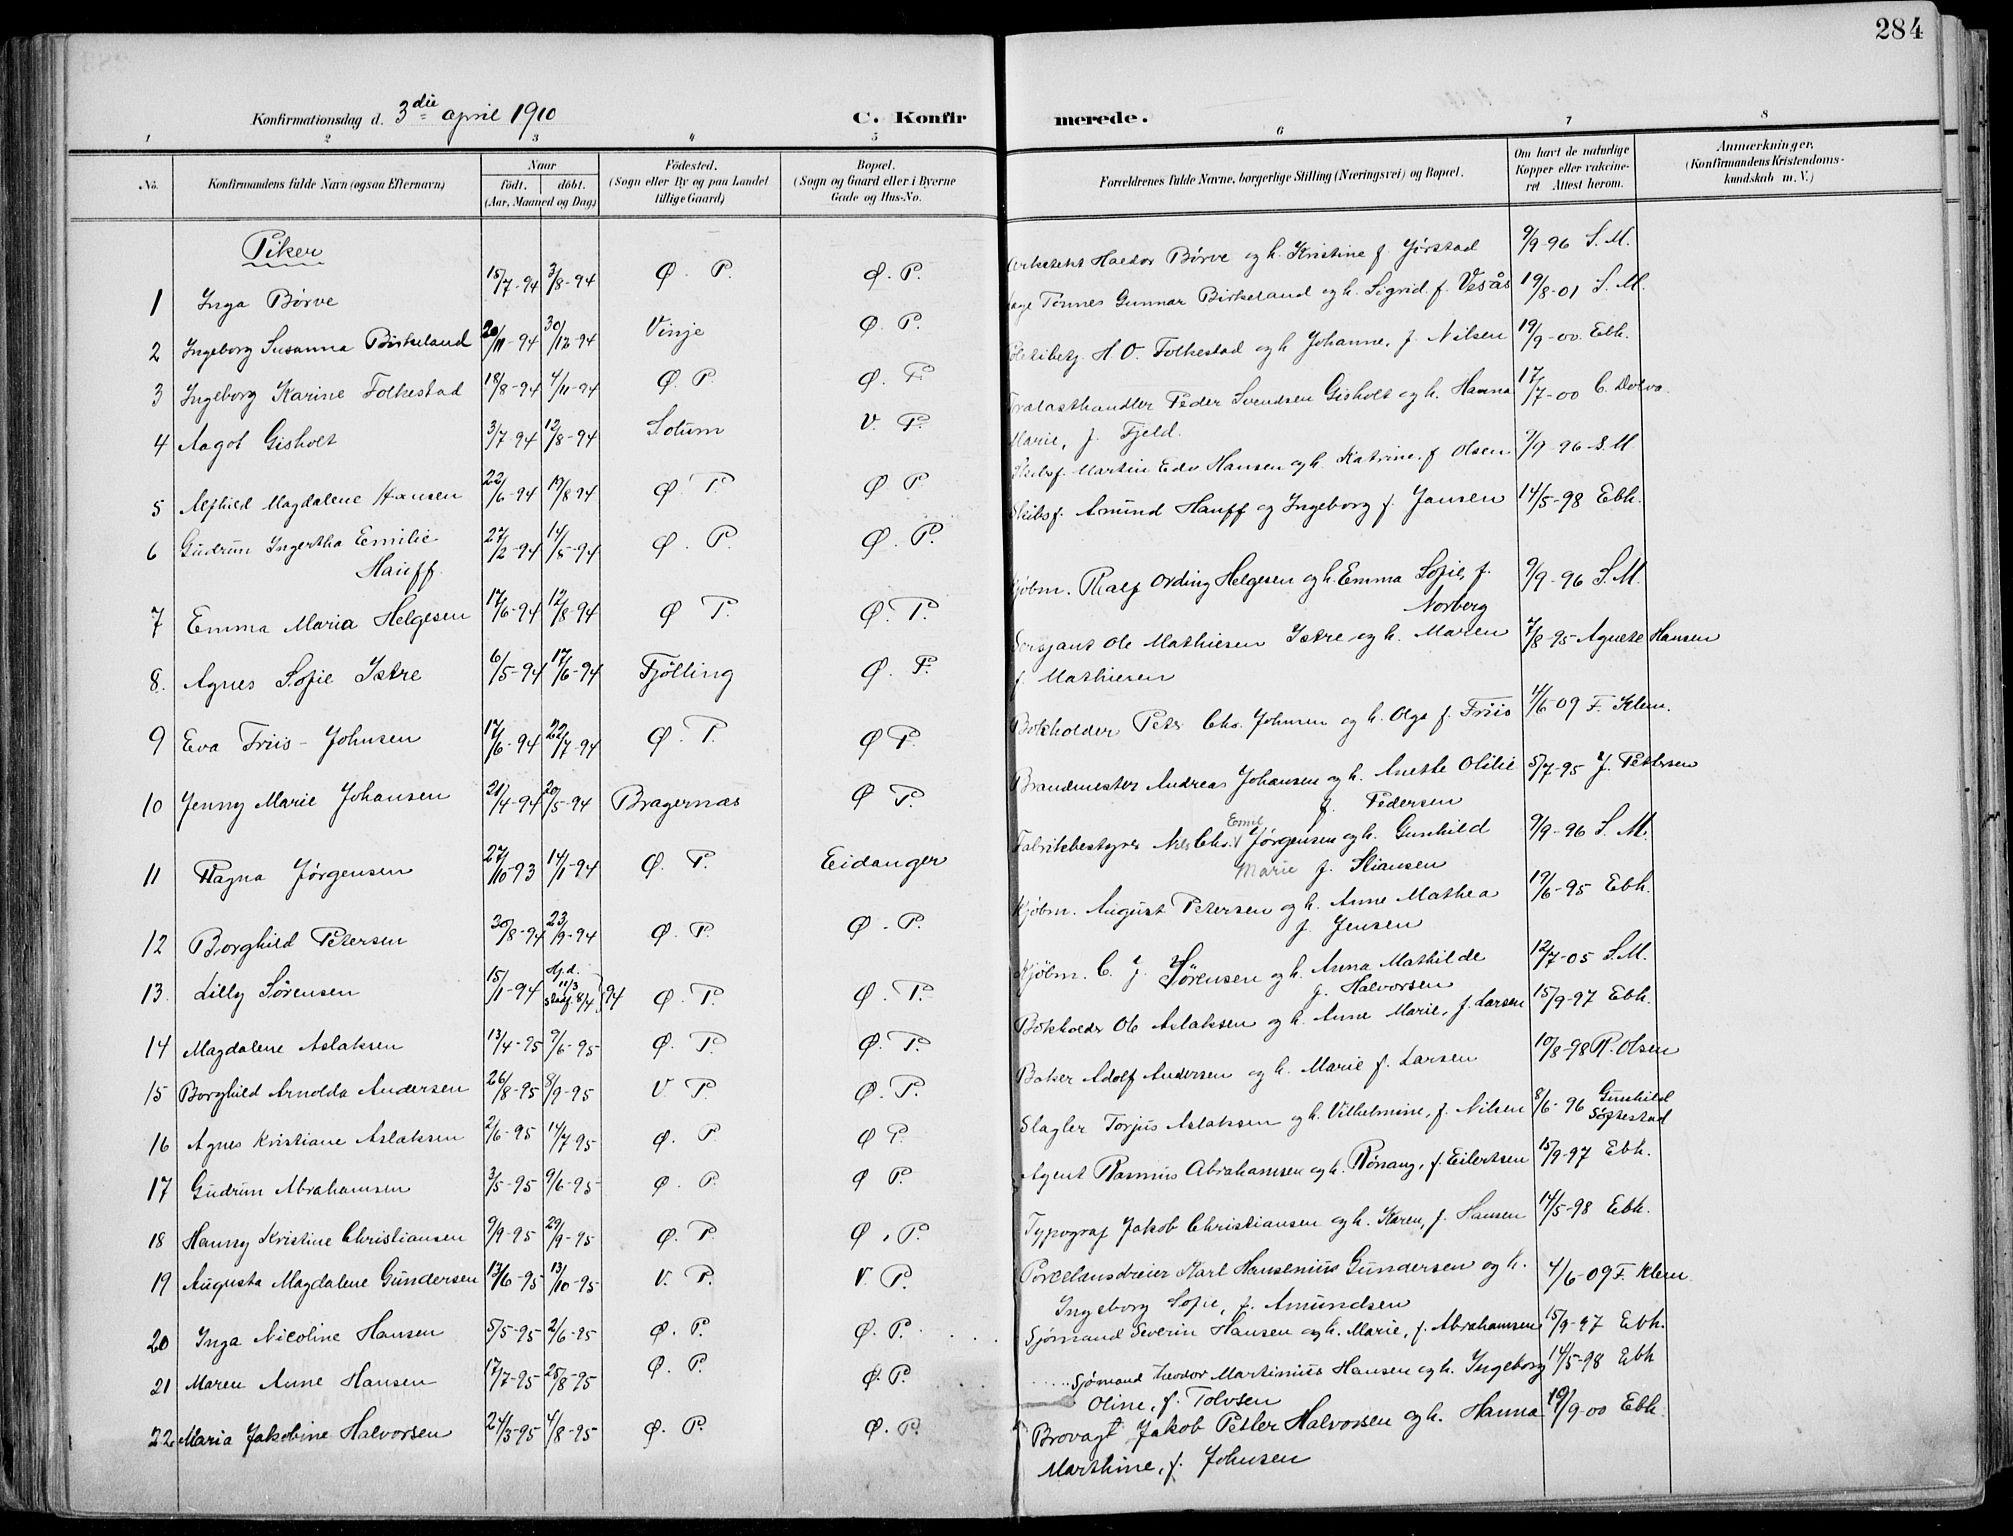 284
Konfirmationsdag d. 3die april 1910
C. Konfirmerede.
1 2 3 4 5 6 7 8
No. Konfirmandens fulde Navn (ogsaa Efternavn) Naar födt. döbt. (Aar, Maaned og Dag) Födested. (Sogn eller By og paa Landet tillige Gaard) Bopæl. (Sogn og Gaard eller i Byerne Gade og Hus-No. Forældrenes fulde Navne, borgerlige Stilling (Næringsvei) og Bopæl. Om havt de naturlige Kopper eller vakcineret Attest herom. Anmærkninger. (Konfirmandens Kristendomskundskab m. V.)
Piker
1 Inga Børve 15/7-94 3/8-94 Ø. P. Ø. P. Arkitekt Haldor Børve og h. Kristine f. Jørstad 9/9-96 S. M.
2 Ingeborg Susanna Birkeland 20/11-94 30/12-94 Vinje Ø. P. Tønnes Gunnar Birkeland og h. Sigrid f. Vesås 19/8-01 S. M.
3 Ingeborg Karine Folkestad 18/8-94 4/11-94 Ø. P. Ø. P. H. O. Folkestad og h. Johanne, f. Nilsen 19/9-00 Ebh.
4 Aagot Gisholt 3/7-94 12/8-94 Solum V. P. Trælasthandler Peder Svendsen Gisholt og h. Hanna 17/7-00 C. Dolva
Marie, f. Fjeld.
5 Alfhild Magdalene Hansen 22/6-94 19/8 94 Ø. P. Ø P. Skibsf. Martin Edv Hansen og h. Katrine f. Olsen 9/9-96 S. M
6 Gudrun Ingertha Emilie 27/2-94 14/5-94 Ø. P. Ø. P. Skibsf. Amund Hauff og Ingeborg f. Jansen 14/5-98 Ebh.
Hauff.
7 Emma Maria Helgesen 17/6-94 12/8-94 Ø P. Ø. P. Kjøbm. Ralf Ording Helgesen og h. Emma Sofie, f. 9/9-96 S. M.
Norberg
8. Agnes Sofie Istre 6/5-94 17/6-94 Tjølling Ø. P. Sersjant Ole Mathiesen Istre og h. Maren 7/8-95 Agnete Hansen
f. Mathiesen
9 Eva Friis-Johnsen 17/6-94 22/7-94 Ø. P. Ø P. Bokholder Peter Chr. Johnsen og h. Olga f. Friis 4/6 09 F. Klem.
10 Jenny Marie Johansen 21/4-94 20/5-94 Bragernæs Ø P. Brandmester Andreas Johansen og h. Anette Otilie 5/7-95 J. Petersen
f. Pedersen
11 Ragna Jørgensen 27/10-93 14/1-94 Ø. P. Eidanger Fabrikbestyrer Nils Chr. Emil Jørgensen og h. Gunhild 9/9-96 S. M.
Marie f. Stiansen
12 Borghild Petersen 30/8-94 23/9-94 Ø. P. Ø. P. Kjøbm. August Petersen og h. Anne Mathea 19/6-95 Ebh.
f. Jensen
13. Lilly Sørensen 15/1-94 Hj.d. 11/3 8/4 94 Ø. P. Ø. P. Kjøbm. C. J. Sørensen og h. Anna Mathilde 12/7-05 S. M.
f. Halvorsen
14 Magdalene Aslaksen 13/4-95 9/6-95 Ø. P. Ø. P. Bokholder Ole Aslaksen og h. Anne Marie, f. Larsen 15/9-97 Ebh.
15 Borghild Arnolda Andersen 26/8-95 8/9-95 V. P. Ø. P. Baker Adolf Andersen og h. Marie f. Larsen 10/8-98 R. Olsen
16 Agnes Kristiane Aslaksen 2/6-95 14/7-95 Ø. P. Ø P. Slagter Torjus Aslaksen og h. Vilhelmine, f. Nilsen 8/6-96 Gunhild Søftestad
17 Gudrun Abrahamsen 3/5-95 9/6-95 Ø. P. Ø P. Agent Rasmus Abrahamsen og h. Rønaug, f. Eilertsen 15/9-97 Ebh.
18 Hanny Kristine Christiansen 9/9-95 29/9-95 Ø. P. Ø. P. Typograf Jakob Christiansen og h. Karen, f. Hansen 14/5-98 Ebh.
19 Augusta Magdalene Gundersen 13/6-95 13/10-95 V. P. V. P. Porcelansdreier Karl Hansenius Gundersen og h. 4/6-09 F. Klem
Ingeborg Sofie, f. Amundsen
20 Inga Nicoline Hansen 5/5-95 2/6-95 Ø. P. Ø. P. Sjømand Severin Hansen og h. Marie, f. Abrahamsen 15/9-97 Ebh.
21 Maren Anne Hansen 17/7-95 25/8-95 Ø. P. Ø. P. Sjømand Theodor Martinius Hansen og h. Ingeborg 14/5-98 Ebh
Oline, f. Tolvsen
22 Maria Jakobine Halvorsen 24/3-95 4/8-95 Ø. P. Ø. P. Brovagt Jakob Petter Halvorsen og h. Hanna 19/9-00 Ebh.
Marthine, f. Johnsen